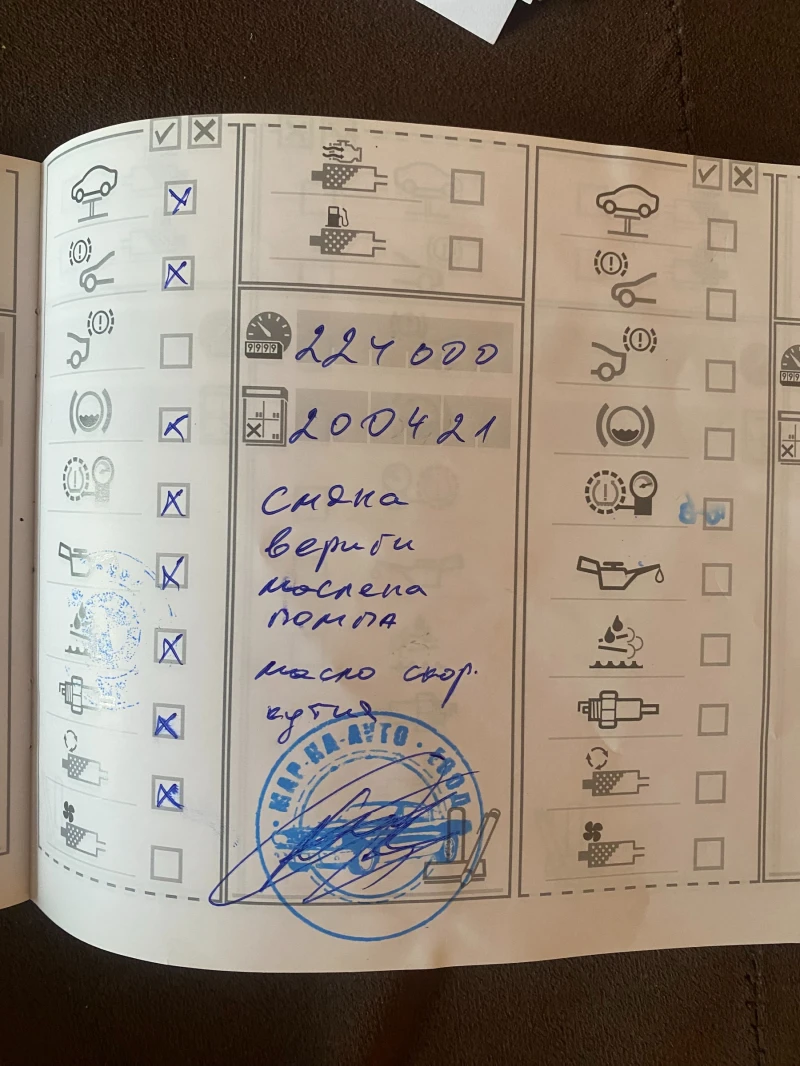 9999
224000
200421
смяна
вериги
маслена
помпа
масло скор.
кутия
МАР-КА-АУТО · ЕООД